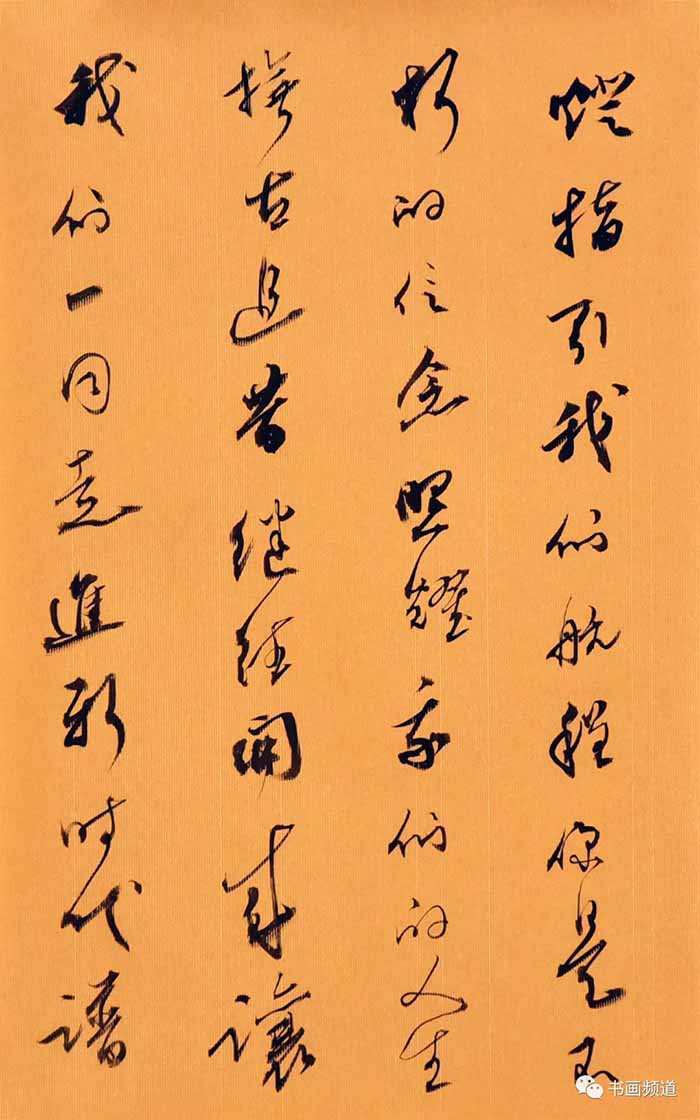 燈指引我们航程你是不
朽的信念照耀我们的人生
撫古追昔继往開来讓
我们一同走進新时代谱
书画频道